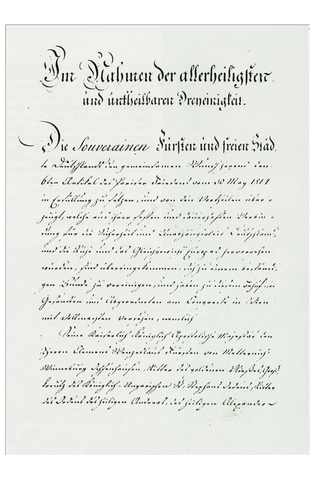 Im Nahmen der allerheiligsten
und untheilbaren Dreyeinigkeit.
Die Souverainen Fürsten und freien Städ
te Deutschlands den gemeinsamen Wunsch hegend den
6ten Artikel des Pariser Friedens vom 30 May 1814
in Erfüllung zu setzen, und von den Vortheilen über
zeugt, welche aus ihrer festen und dauerhaften Verbin
dung für die Sicherheit und Unabhängigkeit Deutschlands,
und die Ruhe und das Gleichgewicht Europas hervorgehen
würden, sind übereingekommen, sich zu einem bestän
gen Bunde zu vereinigen, und haben zu diesem Behuf ihre
Gesandten und Abgeordneten am Congresse in Wien
mit Vollmachten versehen, nemlich
Seine Kaiserlich Königlich Apostolische Majestät den
Herrn Clemens Wenzeslaus Fürsten von Metternich
Winneburg Ochsenhausen, Ritter des goldenen Vließes, Groß
kreutz des Königlich-Ungarischen St. Stephans Ordens, Ritter
des Ordens des heiligen Andreas, des heiligen Alexander